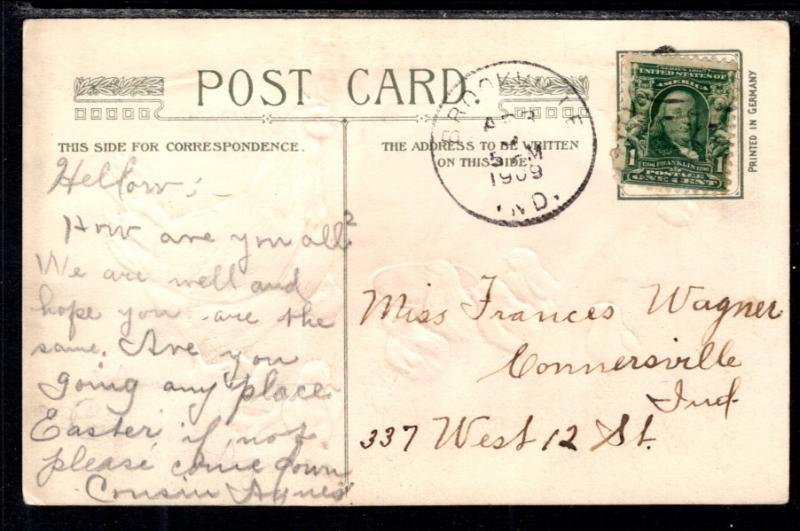 POST CARD
THIS SIDE FOR CORRESPONDENCE.
THE ADDRESS TO BE WRITTEN
ON THIS SIDE.
PRINTED IN GERMANY
BROOKVILLE
APR
5 PM
1909
IND.
UNITED STATES OF
AMERICA
1 FRANKLIN 1
POSTAGE
ONE CENT
Hellow:-
How are you all?
We are well and
hope you are the
same. Are you
going any place
Easter, if not
please come down
Cousin Agnes
Miss Frances Wagner
Connersville
Ind
337 West 12 St.